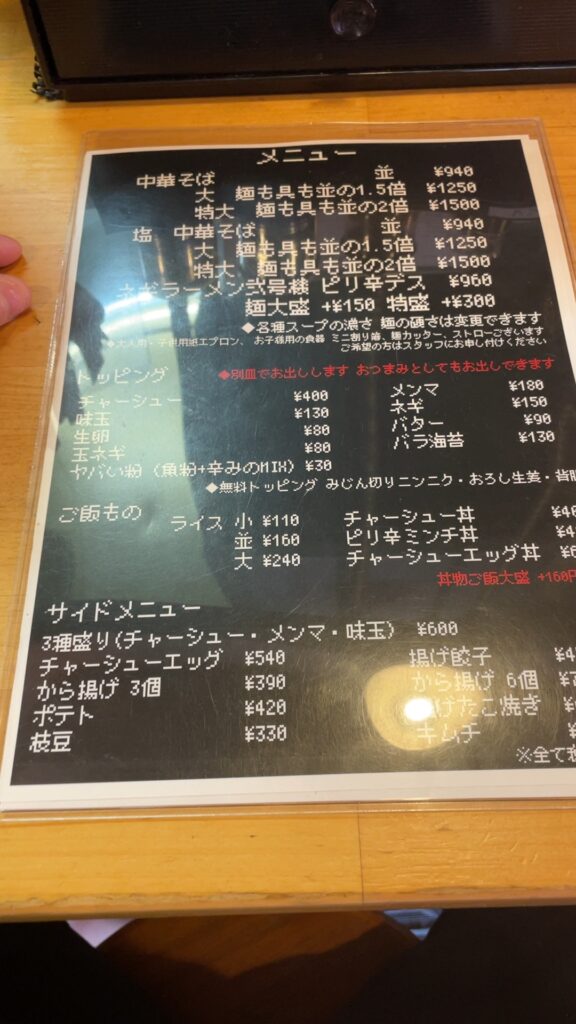 メニュー
中華そば 並 ¥940
大 麺も具も並の1.5倍 ¥1250
特大 麺も具も並の2倍 ¥1500
塩 中華そば 並 ¥940
大 麺も具も並の1.5倍 ¥1250
特大 麺も具も並の2倍 ¥1500
ネギラーメン弐号機 ピリ辛デス ¥960
麺大盛 +¥150 特盛 +¥300
◆各種スープの濃さ 麺の硬さは変更できます
◆大人用・子供用紙エプロン、 お子様用の食器 ミニ割り箸、麺カッター、ストローございます
ご希望の方はスタッフにお申し付けください
トッピング ◆別皿でお出しします おつまみとしてもお出しできます
チャーシュー ¥400 メンマ ¥180
味玉 ¥130 ネギ ¥150
生卵 ¥80 バター ¥90
玉ネギ ¥80 バラ海苔 ¥130
ヤバい粉（魚粉+辛みのMIX）¥30
◆無料トッピング みじん切りニンニク・おろし生姜・背脂
ご飯もの ライス 小 ¥110 チャーシュー丼
並 ¥160 ピリ辛ミンチ丼
大 ¥240 チャーシューエッグ丼
丼物ご飯大盛 +160円
サイドメニュー
3種盛り(チャーシュー・メンマ・味玉) ¥600
チャーシューエッグ ¥540 揚げ餃子
から揚げ 3個 ¥390 から揚げ 6個
ポテト ¥420 けたこ焼き
枝豆 ¥330 キムチ
※全て